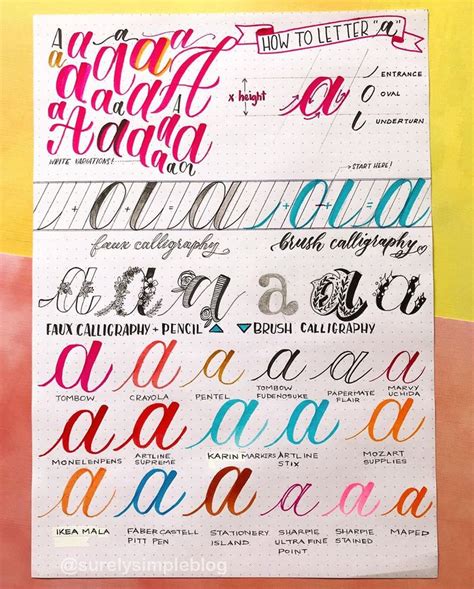 HOW TO LETTER "a"
A a a a a
a a a a A
a a a a a
A a a a a
a a a
WRITE VARIATIONS!
x height
a
ENTRANCE
OVAL
UNDERTURN
START HERE!
+ + = a + = a
faux calligraphy brush calligraphy
a a a a a a
FAUX CALLIGRAPHY + PENCIL BRUSH CALLIGRAPHY
a a a a a a
TOMBOW CRAYOLA PENTEL TOMBOW FUDENOSUKE PAPERMATE FLAIR MARVY UCHIDA
a a a a a
MONELENPENS ARTLINE SUPREME KARIN MARKERS ARTLINE STIX MOZART SUPPLIES
a a a a a a
IKEA MALA FABER CASTELL PITT PEN STATIONERY ISLAND SHARPIE ULTRA FINE POINT SHARPIE STAINED MAPED
@surelysimpleblog